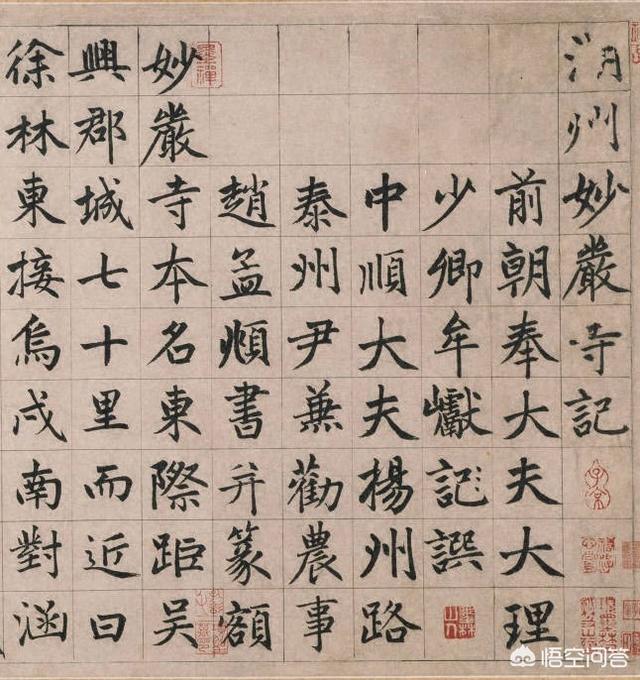 湖州妙嚴寺記
前朝奉大夫大理
少卿牟巘記譔
中順大夫楊州路
泰州尹兼勸農事
趙孟頫書并篆額
妙嚴寺本名東際距吳
興郡城七十里而近曰
徐林東接烏戍南對涵
悟空问答